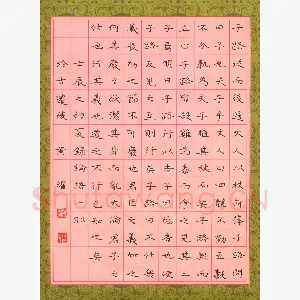 子路從而後遇丈人以杖荷蓧子路問
曰子見夫子乎丈人曰四體不勤五穀
不分孰為夫子植其杖而芸子路拱而
立止子路宿殺雞為黍而食之見其二
子焉明日子路行以告子曰隱者也使
子路反見之至則行矣子路曰不仕無
義長幼之節不可廢也君臣之義如之
何其廢之欲潔其身而亂大倫君子之
仕也行其義也道之不行已知之矣
壬辰之夏錄論語
於古瀛 黃耀